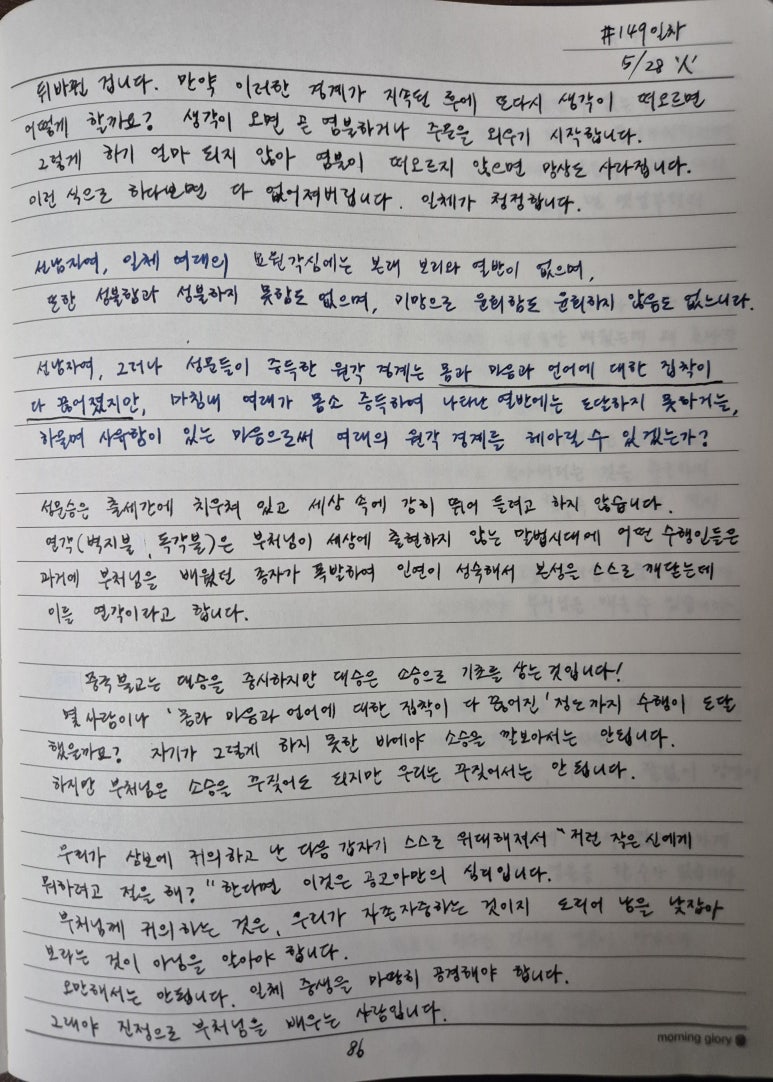 #149일차
5/28 '人'
뒤바뀐 겁니다. 만약 이러한 경계가 지속된 후에 또다시 생각이 떠오르면
어떻게 할까요? 생각이 오면 곧 염불하거나 주문을 외우기 시작합니다.
그렇게 하기 얼마 되지 않아 염불이 떠오르지 않으면 망상도 사라집니다.
이런 식으로 하다보면 다 없어져버립니다. 일체가 청정합니다.
선남자여, 일체 여래의 묘원각심에는 본래 보리와 열반이 없으며,
또한 성불함과 성불하지 못함도 없으며, 미망으로 윤회함도 윤회하지 않음도 없느니라.
선남자여, 그러나 성문들이 증득한 원각 경계는 몸과 마음과 언어에 대한 집착이
다 끊어졌지만, 마침내 여래가 몸소 증득하여 나타난 열반에는 도달하지 못하거늘,
하물며 사유함이 있는 마음으로써 여래의 원각 경계를 헤아릴 수 있겠는가?
성문승은 출세간에 치우쳐 있고 세상 속에 감히 뛰어 들려고 하지 않습니다.
연각(벽지불, 독각불)은 부처님이 세상에 출현하지 않는 말법시대에 어떤 수행인들은
과거에 부처님을 배웠던 종자가 폭발하여 인연이 성숙해서 본성을 스스로 깨닫는데
이를 연각이라고 합니다.
중국불교는 대승을 중시하지만 대승은 소승으로 기초를 삼는 것입니다!
몇 사람이나 '몸과 마음과 언어에 대한 집착이 다 끊어진' 정도까지 수행이 도달
했을까요? 자기가 그렇게 하지 못한 바에야 소승을 깔보아서는 안됩니다.
하지만 부처님은 소승을 꾸짖어도 되지만 우리는 꾸짖어서는 안 됩니다.
우리가 삼보에 귀의하고 난 다음 갑자기 스스로 위대해져서 "저런 작은 신에게
뭐하려고 절을 해?" 한다면 이것은 공고아만의 심리입니다.
부처님께 귀의하는 것은, 우리가 자존자중하는 것이지 도리어 남을 낮잡아
보라는 것이 아님을 알아야 합니다.
오만해서는 안됩니다. 일체 중생을 마땅히 공경해야 합니다.
그래야 진정으로 부처님을 배우는 사람입니다.
86
morning glory